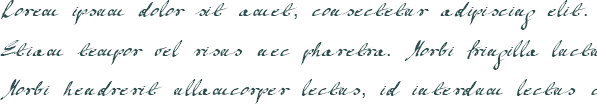 Lorem ipsum dolor sit amet, consectetur adipiscing elit.
Etiam tempor vel risus nec pharetra. Morbi fringilla luctu
Morbi hendrerit ullamcorper lectus, id interdum lectus